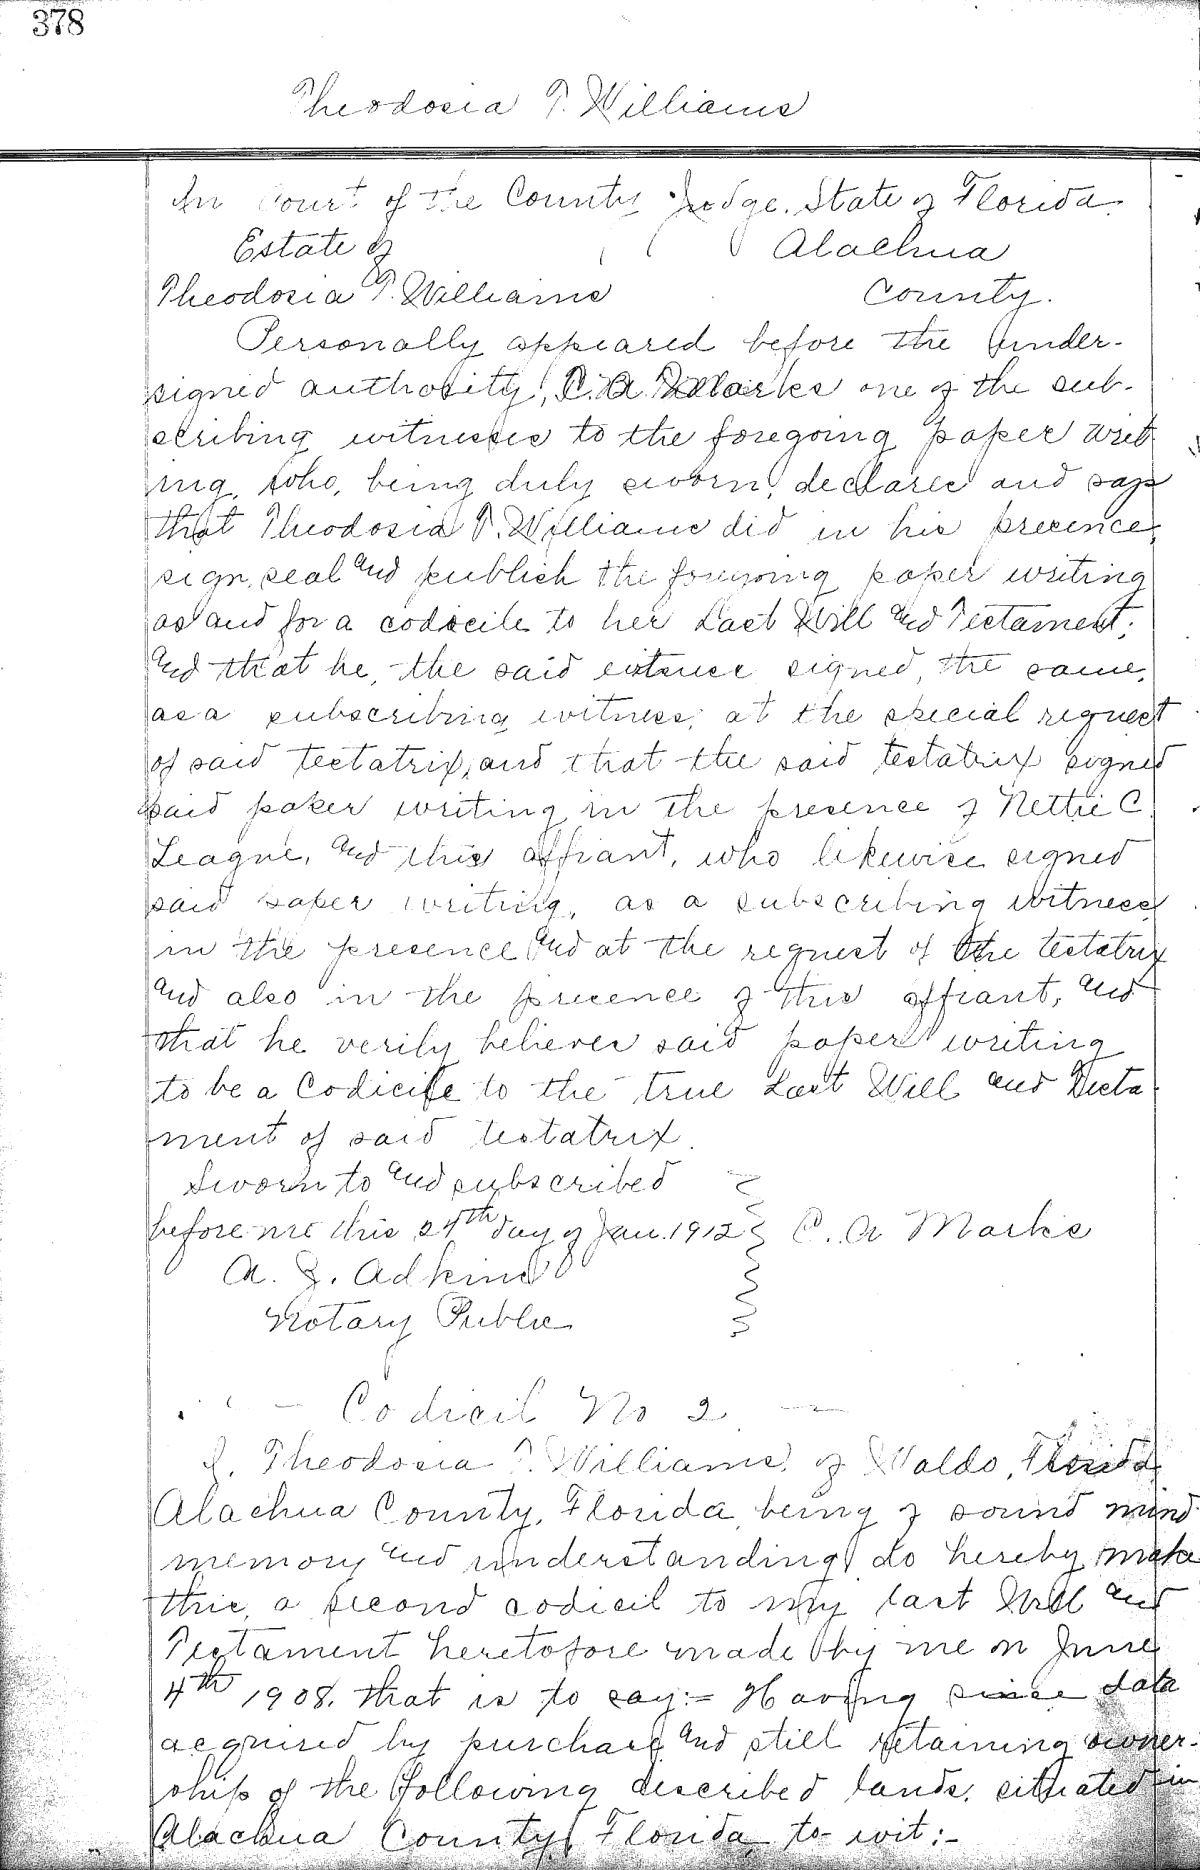 378
Theodosia T. Williams
In Court of the County Judge. State of Florida.
Estate of Alachua
Theodosia T. Williams County.
Personally appeared before the under-
signed authority, C. A. Marks one of the sub-
scribing witnesses to the foregoing paper writ
ing, who, being duly sworn, declares and says
that Theodosia T. Williams did in his presence,
sign, seal and publish the foregoing paper writing
as and for a codicile to her Last Will and Testament;
and that he, the said witness signed, the same,
as a subscribing witness; at the special request
of said testatrix, and that the said testatrix signed
said paper writing in the presence of Nettie C.
League, and this affiant, who likewise signed
said paper writing, as a subscribing witness
in the presence and at the request of the testatrix
and also in the presence of this affiant, and
that he verily believes said paper writing
to be a Codicile to the true Last Will and Testa
ment of said testatrix.
Sworn to and subscribed
before me this 24th day of Jan. 1912 C. A Marks
A. J. Adkins
Notary Public
- Codicil No 2 -
I, Theodosia T. Williams, of Waldo, Florida
Alachua County, Florida, being of sound mind
memory and understanding do hereby make
this, a second codicil to my last Will and
Testament heretofore made by me on June
4th 1908. that is to say:- Having since data
acquired by purchase and still retaining owner-
ship of the following described lands, situated in
Alachua County, Florida, to-wit:-